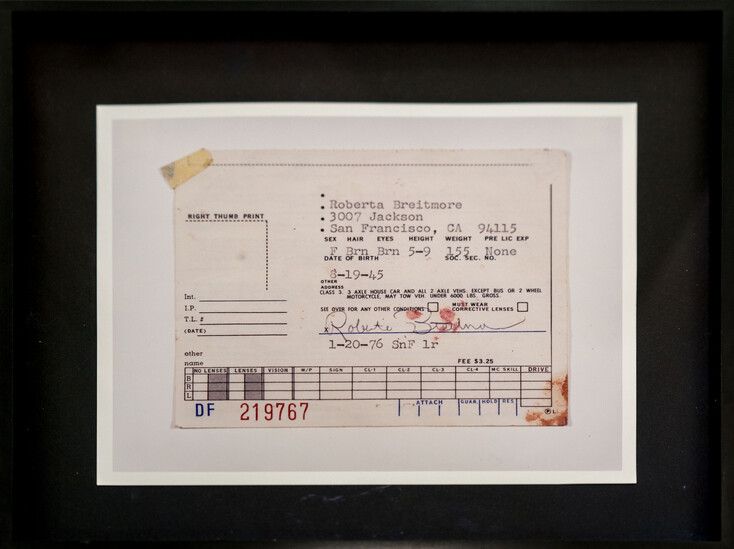 Roberta Breitmore
3007 Jackson
San Francisco, CA 94115
RIGHT THUMB PRINT
SEX HAIR EYES HEIGHT WEIGHT PRE LIC EXP
F Brn Brn 5-9 155 None
DATE OF BIRTH SOC. SEC. NO.
8-19-45
OTHER
ADDRESS
CLASS 3. 3 AXLE HOUSE CAR AND ALL 2 AXLE VEHS. EXCEPT BUS OR 2 WHEEL
MOTORCYCLE, MAY TOW VEH. UNDER 6000 LBS. GROSS.
Int.
I.P.
T.L. #
(DATE)
SEE OVER FOR ANY OTHER CONDITIONS MUST WEAR
CORRECTIVE LENSES
X Roberta Breitmore
1-20-76 SnF lr
other
name
FEE $3.25
NO LENSES LENSES VISION M/P SIGN CL-1 CL-2 CL-3 CL-4 MC SKILL DRIVE
B
R
L
DF 219767
ATTACH GUAR. HOLD RES